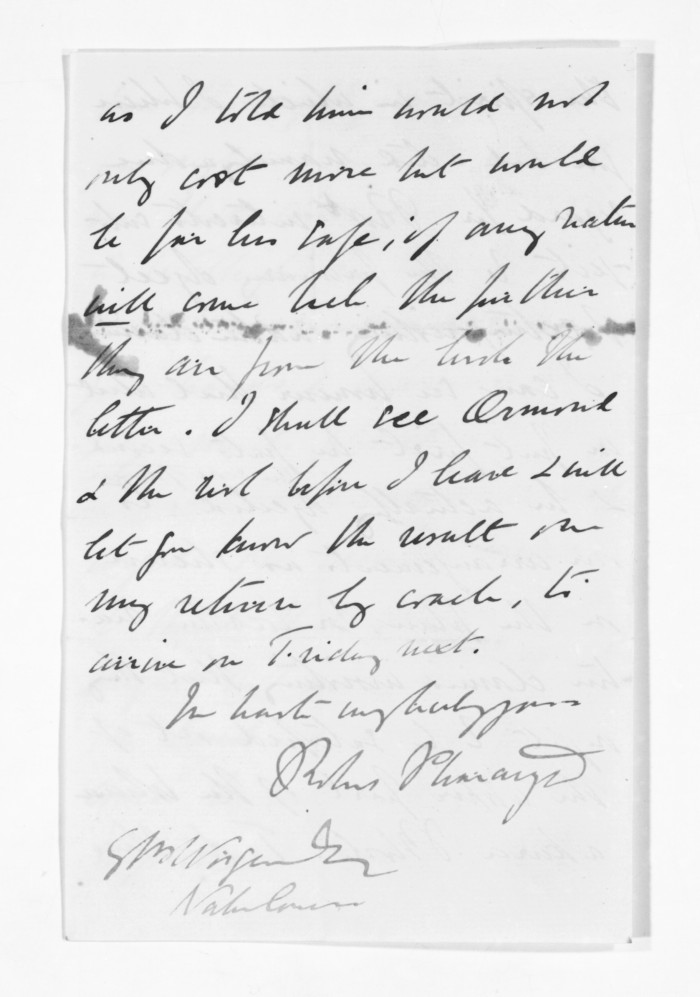 as I told him would not
only cost more but would
be far less safe, if any natives
will come back the further
they are from the bush the
better. I shall see Ormond
& the rest before I leave & will
let you know the result on
my return by coach, to
arrive on Friday next.
In haste